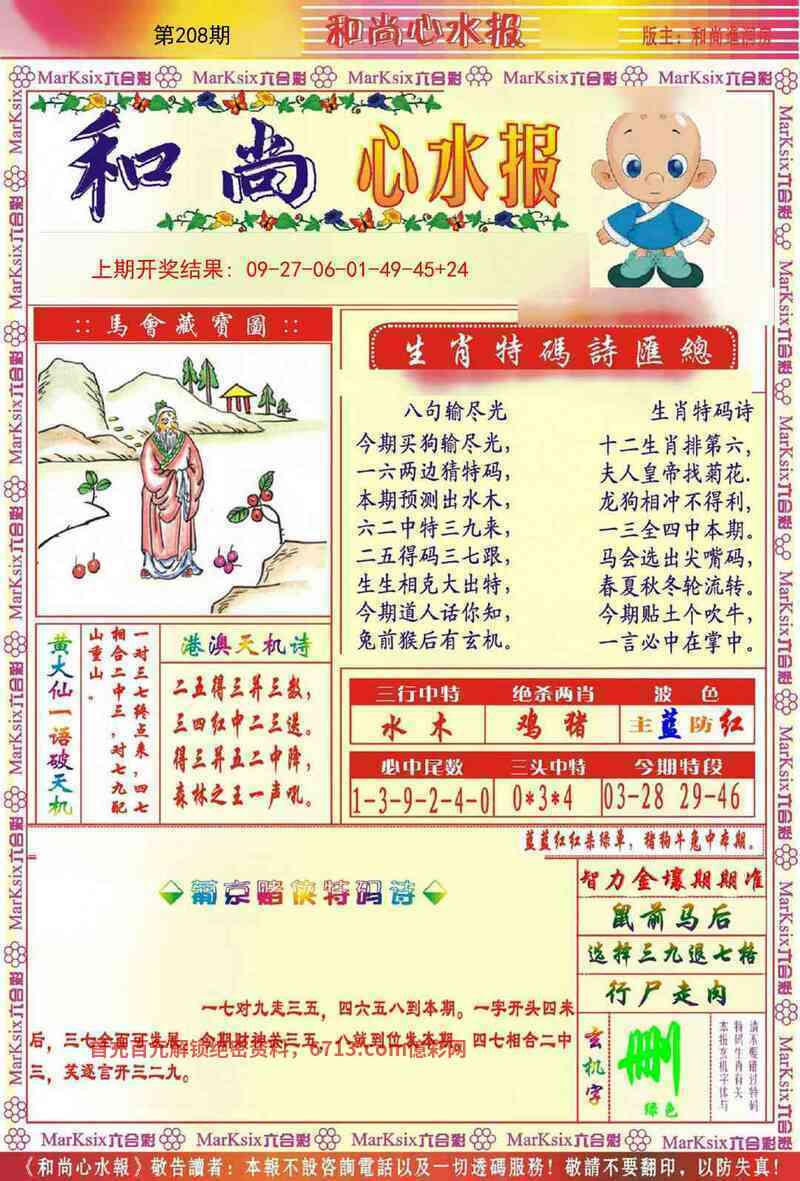 第208期
和尚心水报
版主：和尚
MarKsix六合彩 MarKsix六合彩 MarKsix六合彩 MarKsix六合彩 MarKsix六合彩
和尚心水报
上期开奖结果：09-27-06-01-49-45+24
::馬會藏寶圖::
生肖特碼詩匯總
八句输尽光
今期买狗输尽光，
一六两边猜特码，
本期预测出水木，
六二中特三九来，
二五得码三七跟，
生生相克大出特，
今期道人话你知，
兔前猴后有玄机。
生肖特码诗
十二生肖排第六，
夫人皇帝找菊花.
龙狗相冲不得利，
一三全四中本期。
马会选出尖嘴码，
春夏秋冬轮流转。
今期贴土个吹牛，
一言必中在掌中。
黄大仙一语破天机
一对三七终点来，四七
相合二中三，对七九配
山重山。
港澳天机诗
二五得三并三数，
三四红中二三送。
得三并五二中降，
森林之王一声吼。
三行中特 绝杀两肖 波色
水木 鸡猪 主蓝防红
必中尾数 三头中特 今期特段
1-3-9-2-4-0 0*3*4 03-28 29-46
蓝蓝红红杀绿单，猪狗牛兔中本期。
葡京赌侠特码诗
一七对九走三五，四六五八到本期。一字开头四来
后，三七全面可发展，今期财神关三五，八就到位发本期。四七相合二中
三，笑逐言开三二九。
首充首兑解锁绝密资料，6713.com億彩网
智力金壤期期准
鼠前马后
选择三九退七格
行尸走肉
玄机字
删
绿色
请不要错过特码
特码生肖有关
本报玄机字体与
MarKsix六合彩 MarKsix六合彩 MarKsix六合彩 MarKsix六合彩 MarKsix六合彩
《和尚心水報》敬告讀者：本報不設咨詢電話以及一切透碼服務！敬請不要翻印，以防失真！